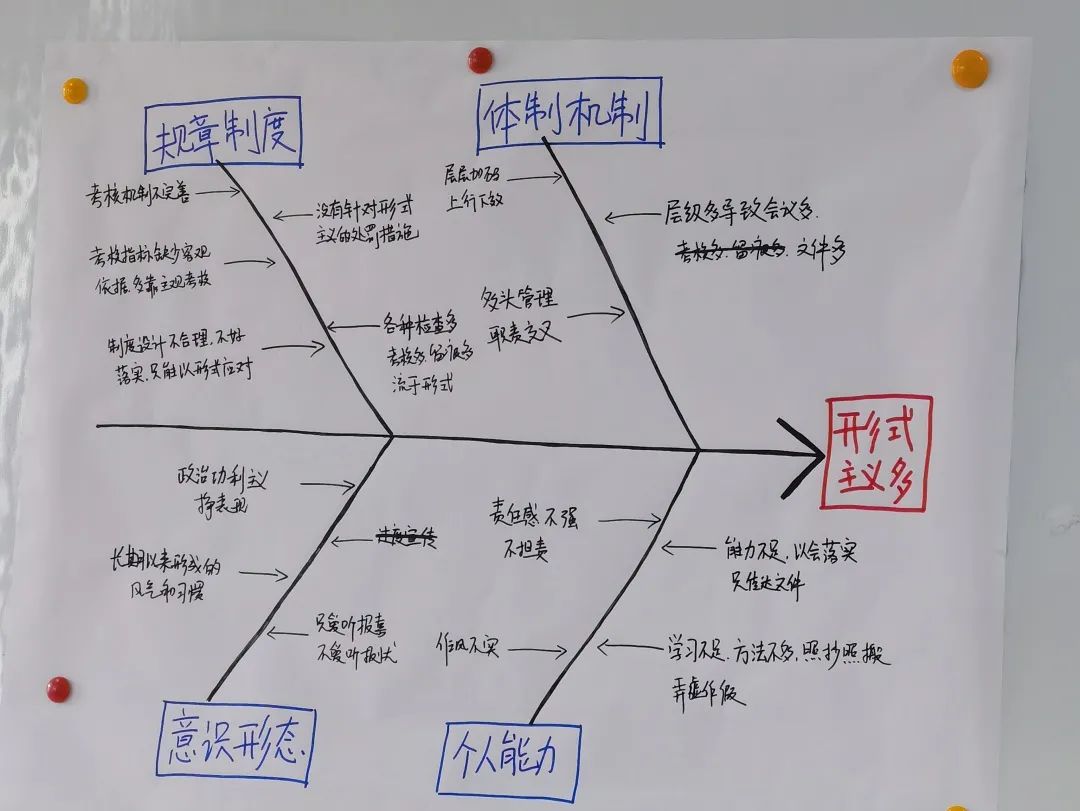 规章制度
考核机制不完善
没有针对形式
主义的处罚措施
考核指标缺少客观
依据.多靠主观考核
制度设计不合理.不好
落实.只能以形式应对
各种检查多
考核多.留痕多
流于形式
体制机制
层层加码
上行下效
层级多导致会议多.
考核多.留痕多.文件多
多头管理
职责交叉
形式
主义多
政治功利主义
挣表现
过度宣传
长期以来形成的
风气和习惯
只爱听报喜
不爱听报忧
意识形态
责任感不强
不担责
能力不足,以会落实
只传达文件
作风不实
学习不足.方法不多,照抄照搬
弄虚作假
个人能力